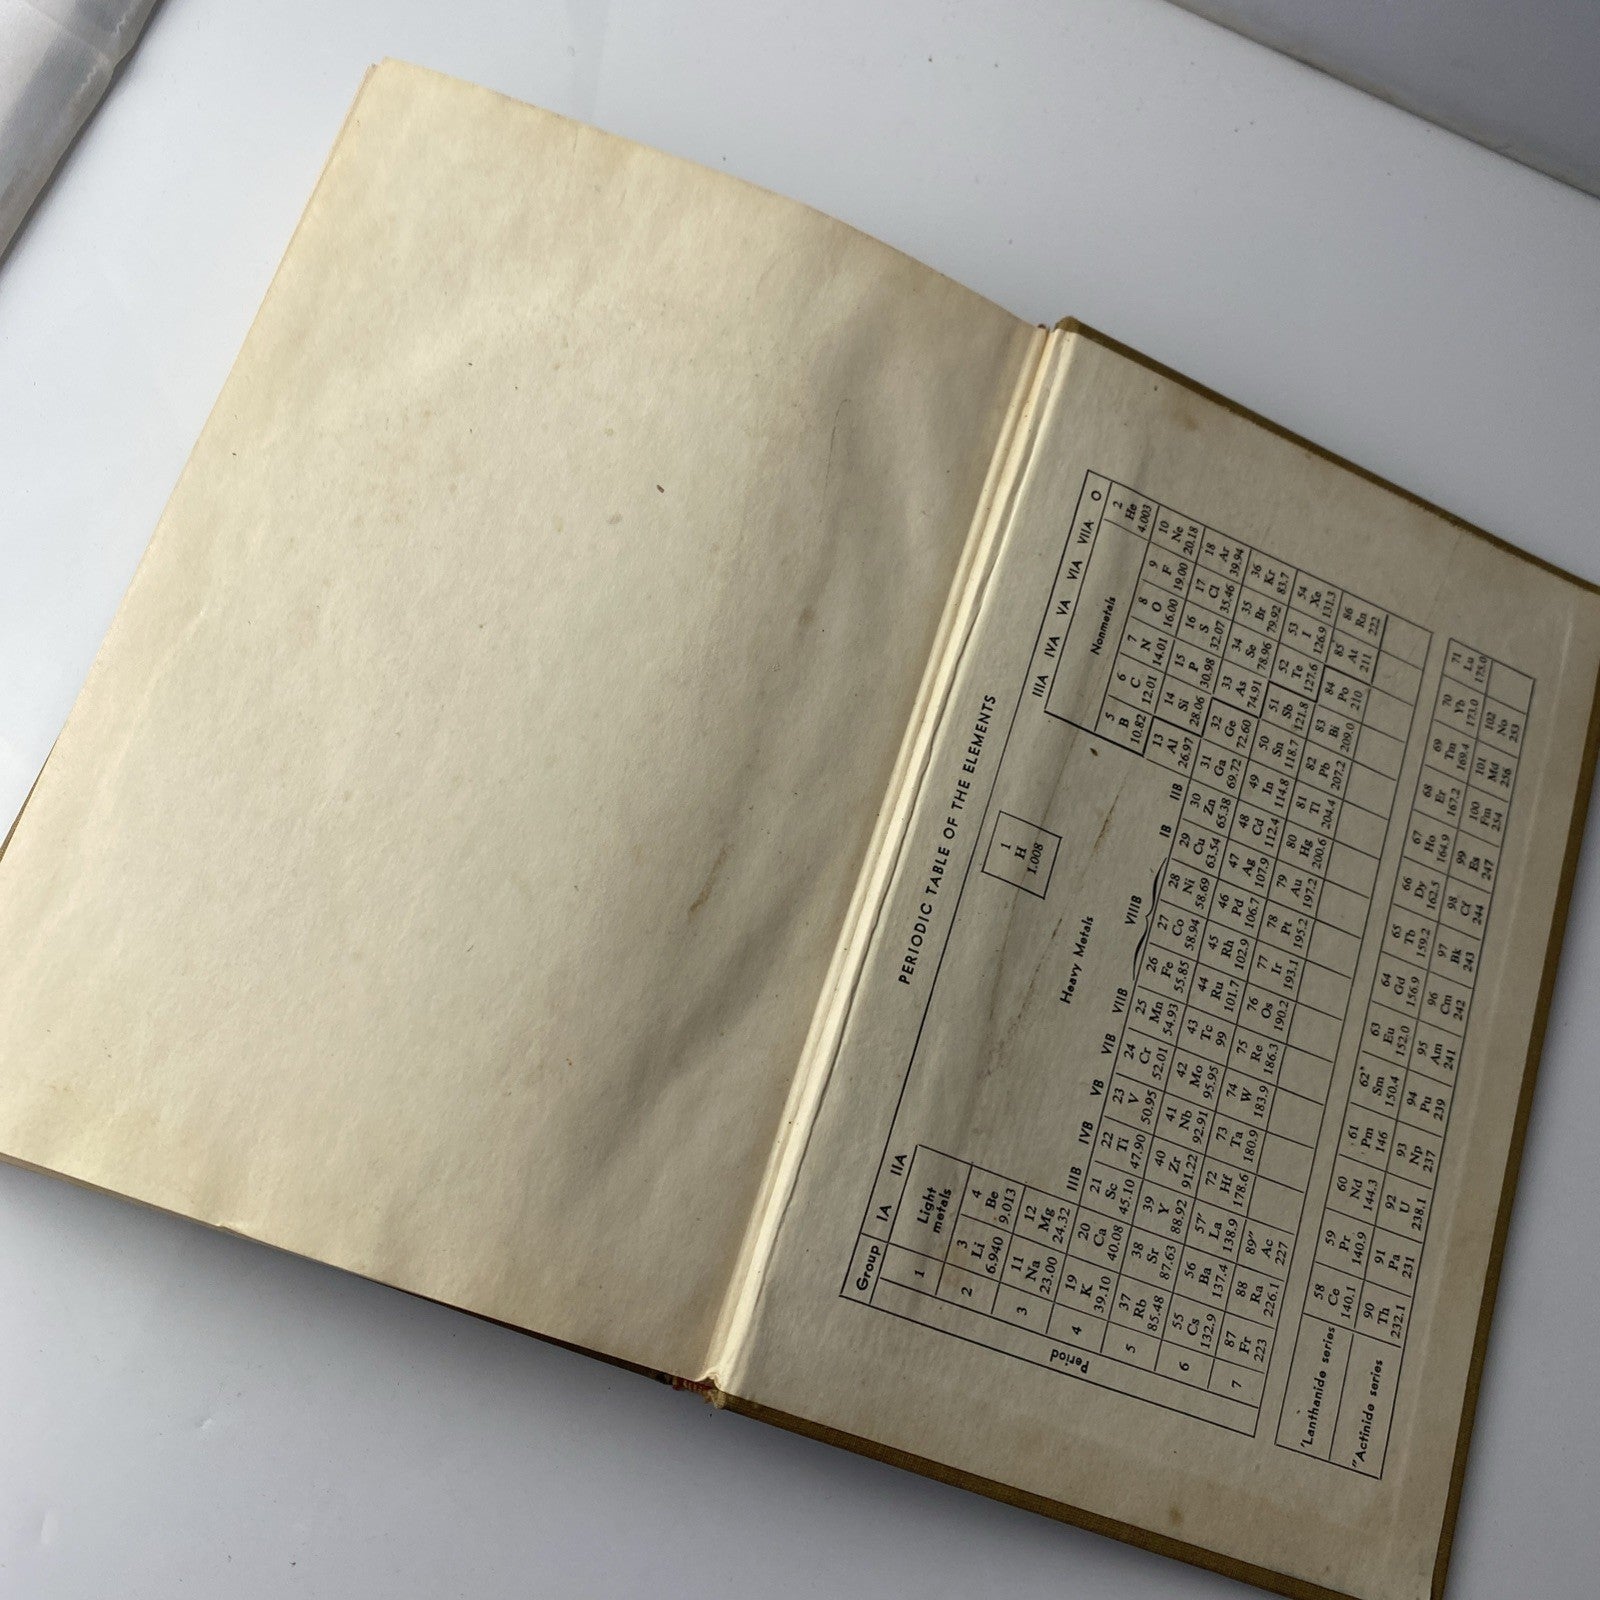 PERIODIC TABLE OF THE ELEMENTS
Group IA IIA IIIA IVA VA VIA VIIA O
Period
1 Light metals 1 H 1.008 Nonmetals 2 He 4.003
2 3 Li 6.940 4 Be 9.013 5 B 10.82 6 C 12.01 7 N 14.01 8 O 16.00 9 F 19.00 10 Ne 20.18
Heavy Metals
3 11 Na 23.00 12 Mg 24.32 IIIB IVB VB VIB VIIB VIIIB IB IIB 13 Al 26.97 14 Si 28.06 15 P 30.98 16 S 32.07 17 Cl 35.46 18 Ar 39.94
4 19 K 39.10 20 Ca 40.08 21 Sc 45.10 22 Ti 47.90 23 V 50.95 24 Cr 52.01 25 Mn 54.93 26 Fe 55.85 27 Co 58.94 28 Ni 58.69 29 Cu 63.54 30 Zn 65.38 31 Ga 69.72 32 Ge 72.60 33 As 74.91 34 Se 78.96 35 Br 79.92 36 Kr 83.7
5 37 Rb 85.48 38 Sr 87.63 39 Y 88.92 40 Zr 91.22 41 Nb 92.91 42 Mo 95.95 43 Tc 99 44 Ru 101.7 45 Rh 102.9 46 Pd 106.7 47 Ag 107.9 48 Cd 112.4 49 In 114.8 50 Sn 118.7 51 Sb 121.8 52 Te 127.6 53 I 126.9 54 Xe 131.3
6 55 Cs 132.9 56 Ba 137.4 57' La 138.9 72 Hf 178.6 73 Ta 180.9 74 W 183.9 75 Re 186.3 76 Os 190.2 77 Ir 193.1 78 Pt 195.2 79 Au 197.2 80 Hg 200.6 81 Tl 204.4 82 Pb 207.2 83 Bi 209.0 84 Po 210 85 At 211 86 Rn 222
7 87 Fr 223 88 Ra 226.1 89" Ac 227
'Lanthanide series 58 Ce 140.1 59 Pr 140.9 60 Nd 144.3 61 Pm 146 62* Sm 150.4 63 Eu 152.0 64 Gd 156.9 65 Tb 159.2 66 Dy 162.5 67 Ho 164.9 68 Er 167.2 69 Tm 169.4 70 Yb 173.0 71 Lu 175.0
"Actinide series 90 Th 232.1 91 Pa 231 92 U 238.1 93 Np 237 94 Pu 239 95 Am 241 96 Cm 242 97 Bk 243 98 Cf 244 99 Es 247 100 Fm 254 101 Md 256 102 No 253